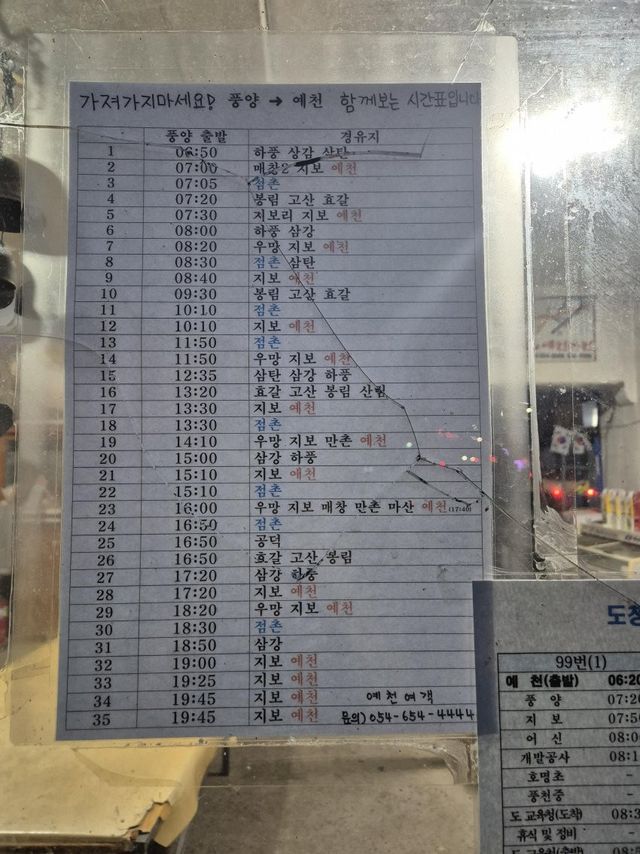 가져가지마세요! 풍양 → 예천 함께보는 시간표입니다
풍양 출발 경유지
1 06:50 하풍 상감 삼탄
2 07:00 매창2 지보 예천
3 07:05 점촌
4 07:20 봉림 고산 효갈
5 07:30 지보리 지보 예천
6 08:00 하풍 삼강
7 08:20 우망 지보 예천
8 08:30 점촌 삼탄
9 08:40 지보 예천
10 09:30 봉림 고산 효갈
11 10:10 점촌
12 10:10 지보 예천
13 11:50 점촌
14 11:50 우망 지보 예천
15 12:35 삼탄 삼강 하풍
16 13:20 효갈 고산 봉림 산림
17 13:30 지보 예천
18 13:30 점촌
19 14:10 우망 지보 만촌 예천
20 15:00 삼강 하풍
21 15:10 지보 예천
22 15:10 점촌
23 16:00 우망 지보 매창 만촌 마산 예천(17:40)
24 16:50 점촌
25 16:50 공덕
26 16:50 효갈 고산 봉림
27 17:20 삼강 하풍
28 17:20 지보 예천
29 18:20 우망 지보 예천
30 18:30 점촌
31 18:50 삼강
32 19:00 지보 예천
33 19:25 지보 예천
34 19:45 지보 예천 예천여객
35 19:45 지보 예천 문의) 054-654-4444
99번(1)
예 천(출발) 06:20
풍 양 07:20
지 보 07:50
어 신 08:0
개발공사 08:1
호명초 -
풍천중 -
도 교육청(도착) 08:3
휴식 및 정비 -
도 교육청(출발)